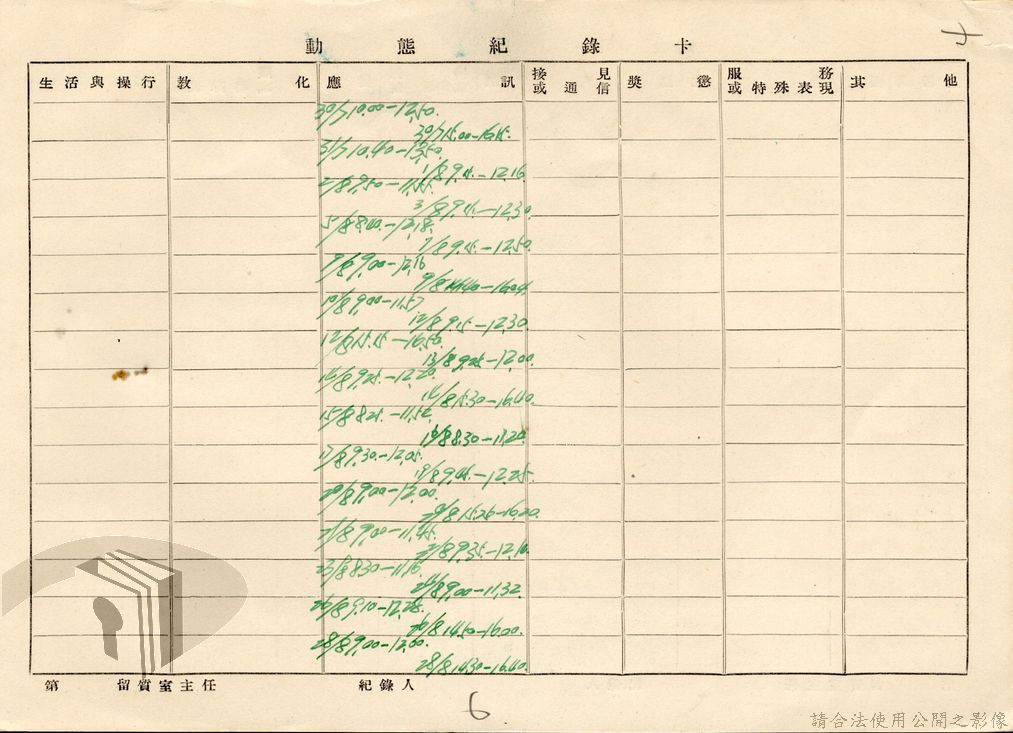 動態紀錄卡
生活與操行 教化 應訊 接見或通信 獎懲 服務或特殊表現 其他
30/7 10.00-12.50.
30/7 15.00-16.15.
31/7 10.40-13.50.
1/8 9.15.-12.16.
2/8 9.50-11.55.
3/8 9.15.-12.30.
5/8 8.40.-12.18.
7/8 9.15.-12.50.
9/8 9.00-12.16
9/8 14.40-16.04.
10/8 9.00-11.57.
12/8 9.15-12.30.
12/8 15.15-16.50.
13/8 9.25-12.00.
14/8 9.25.-12.20.
14/8 15.30-16.40.
15/8 8.25.-11.52.
16/8 8.30-11.20.
17/8 9.30.-12.05.
19/8 9.45.-12.25.
20/8 9.00-12.00.
20/8 15.26-16.20.
21/8 9.00-11.45.
22/8 9.35.-12.10.
23/8 8.30-11.16.
24/8 9.00-11.32.
26/8 9.10-12.28.
26/8 14.50-16.00.
28/8 9.00-12.00.
28/8 14.30-16.40.
第 留質室主任 紀錄人
6
請合法使用公開之影像